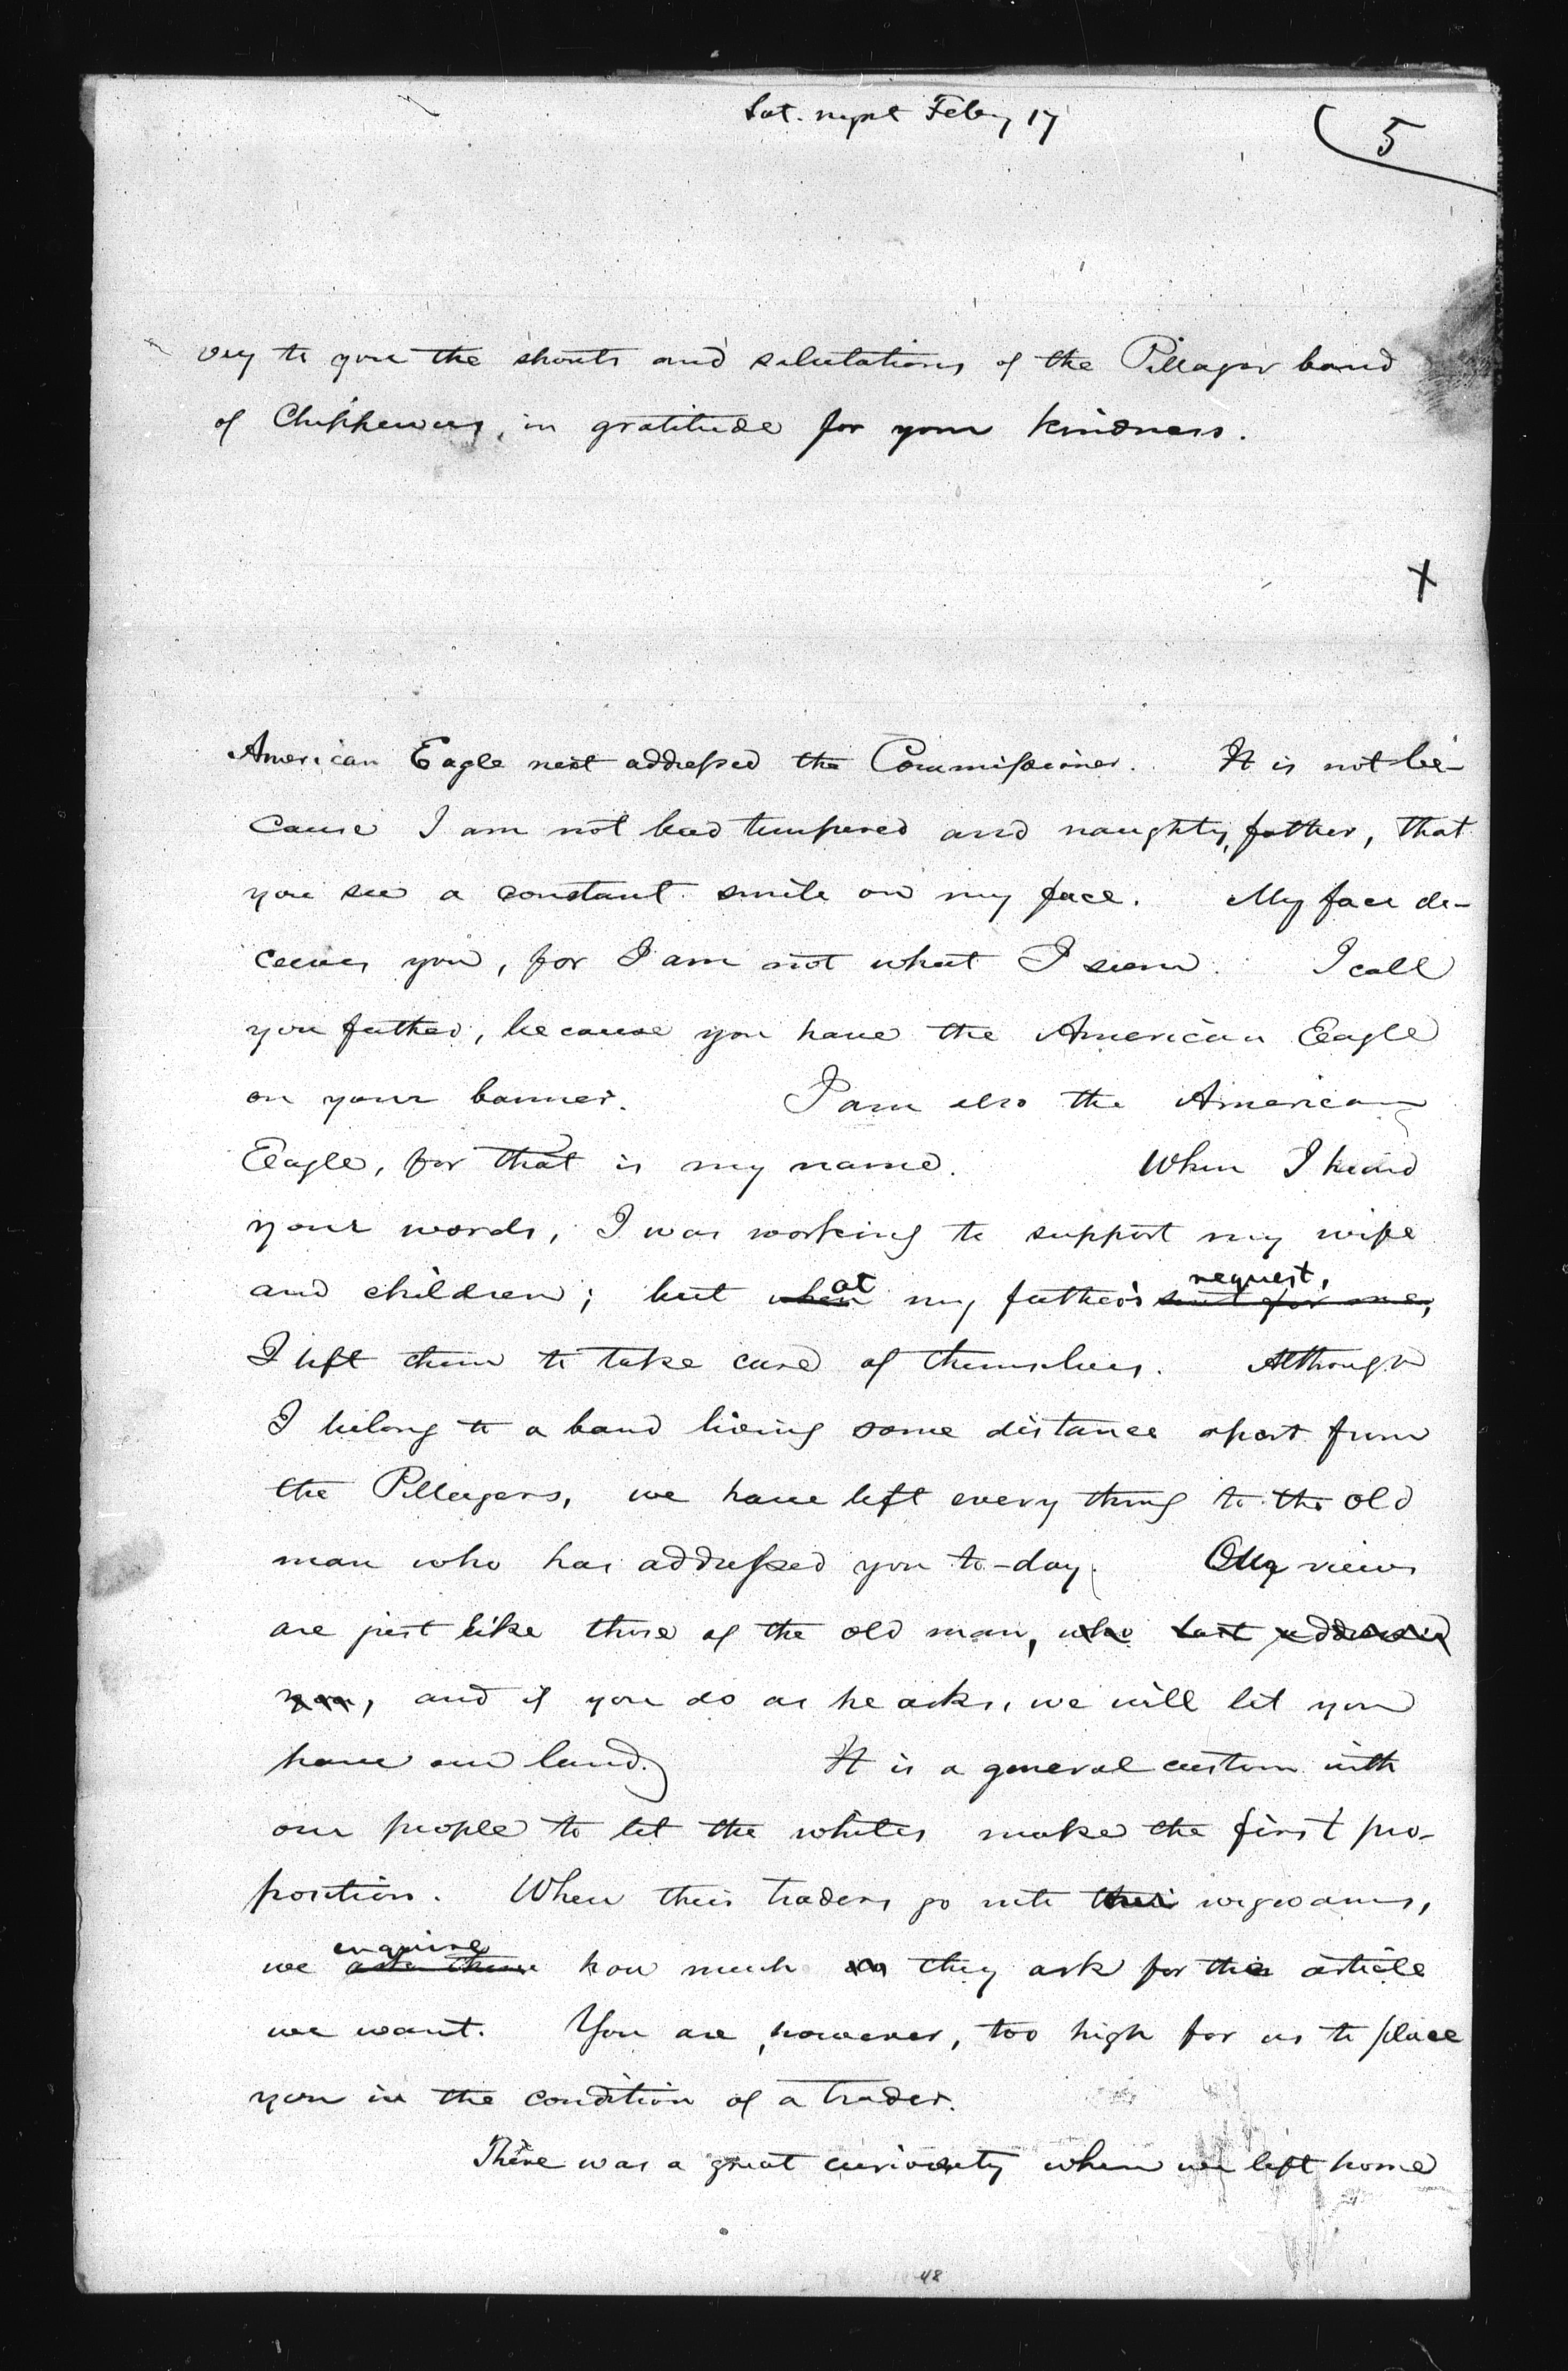 Sat. night Feby 17
5
vey to you the shouts and salutations of the Pillager band
of Chippewas, in gratitude for your kindness.
X
American Eagle next addressed the Commissioner. It is not be-
cause I am not bad tempered and naughty, father, that
you see a constant smile on my face. My face de-
ceives you, for I am not what I seem. I call
you father, because you have the American Eagle
on your banner. I am also the American
Eagle, for that is my name. When I heard
your words, I was working to support my wife
and children; but when at my father's sent for me, request,
I left them to take care of themselves. Although
I belong to a band living some distance apart from
the Pillagers, we have left every thing to the old
man who has addressed you to-day. Our views
are just like those of the old man, who last addressed
you, and if you do as he asks, we will let you
have our land. It is a general custom with
our people to let the whites make the first pro-
position. When their traders go into their wigwams,
we ask them enquire how much do they ask for the article
we want. You are, however, too high for us to place
you in the condition of a trader.
There was a great curiosity when we left home
48